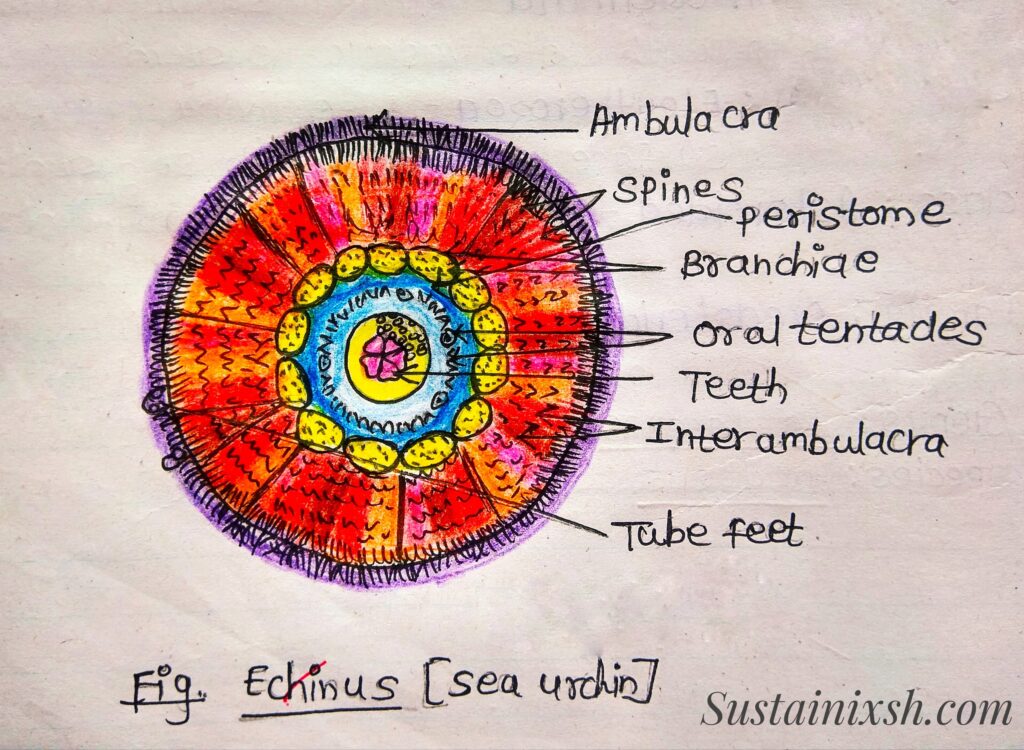 Ambulacra
Spines
peristome
Branchiae
oral tentades
Teeth
Interambulacra
Tube feet
Fig. Echinus [sea urchin]
Sustainixsh.com